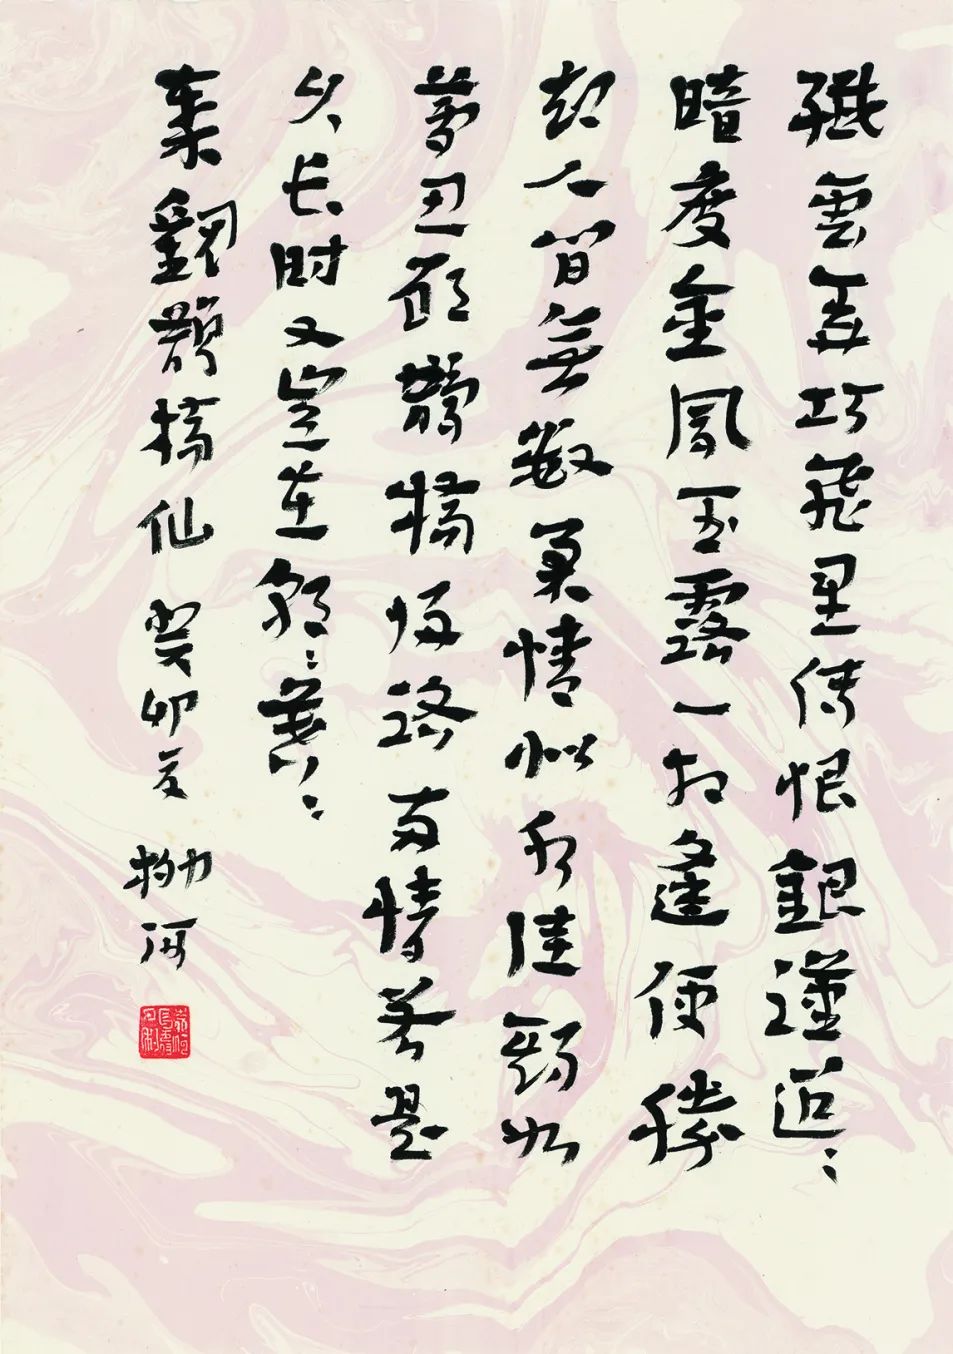 纖雲弄巧飛星傳恨銀漢迢:
暗度金風玉露一相逢便勝
却人間無數柔情似水佳期如
夢忍顧鵲橋歸路两情若是
久长时又豈在朝:暮:
秦觀鵲橋仙 癸卯夏 柳河